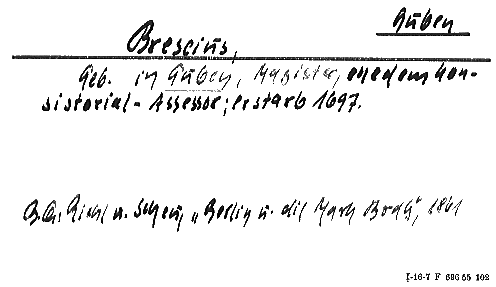 Guben
Brescius,
Geb. in Guben, Magister, und dem Kon-
sistorial-Assessor; er starb 1697.
B.Qu. Riehl u. Scheu, „Berlin u. die Mark Brdbg", 1861
I-16-7 F 686 55 102